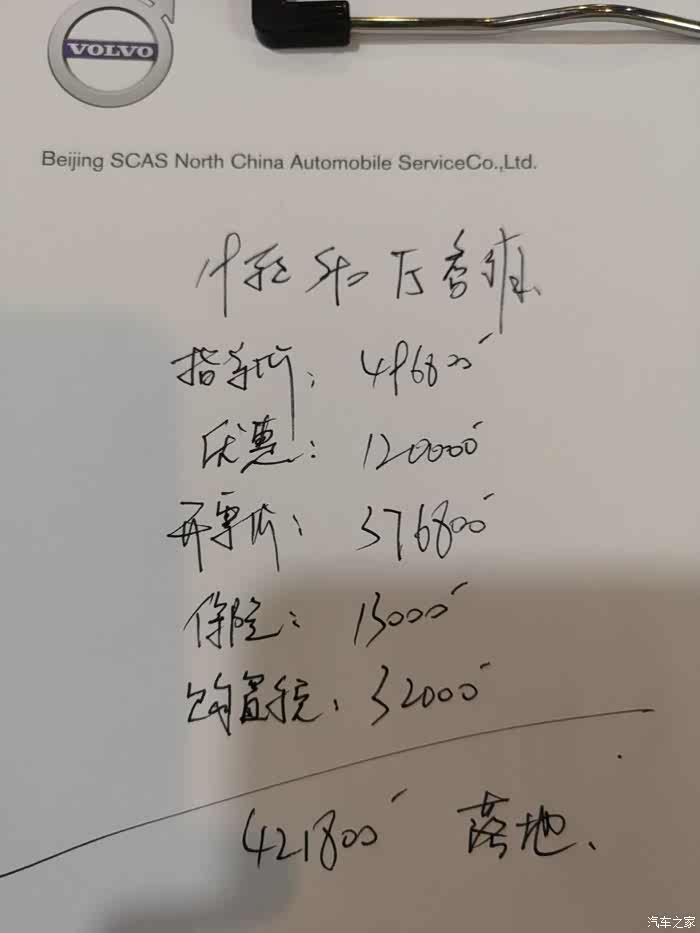 VOLVO
Beijing SCAS North China Automobile ServiceCo.,Ltd.
指导价: 496800
优惠: 120000
开票价: 376800
保险: 13000
购置税: 32000
421800 落地.
汽车之家